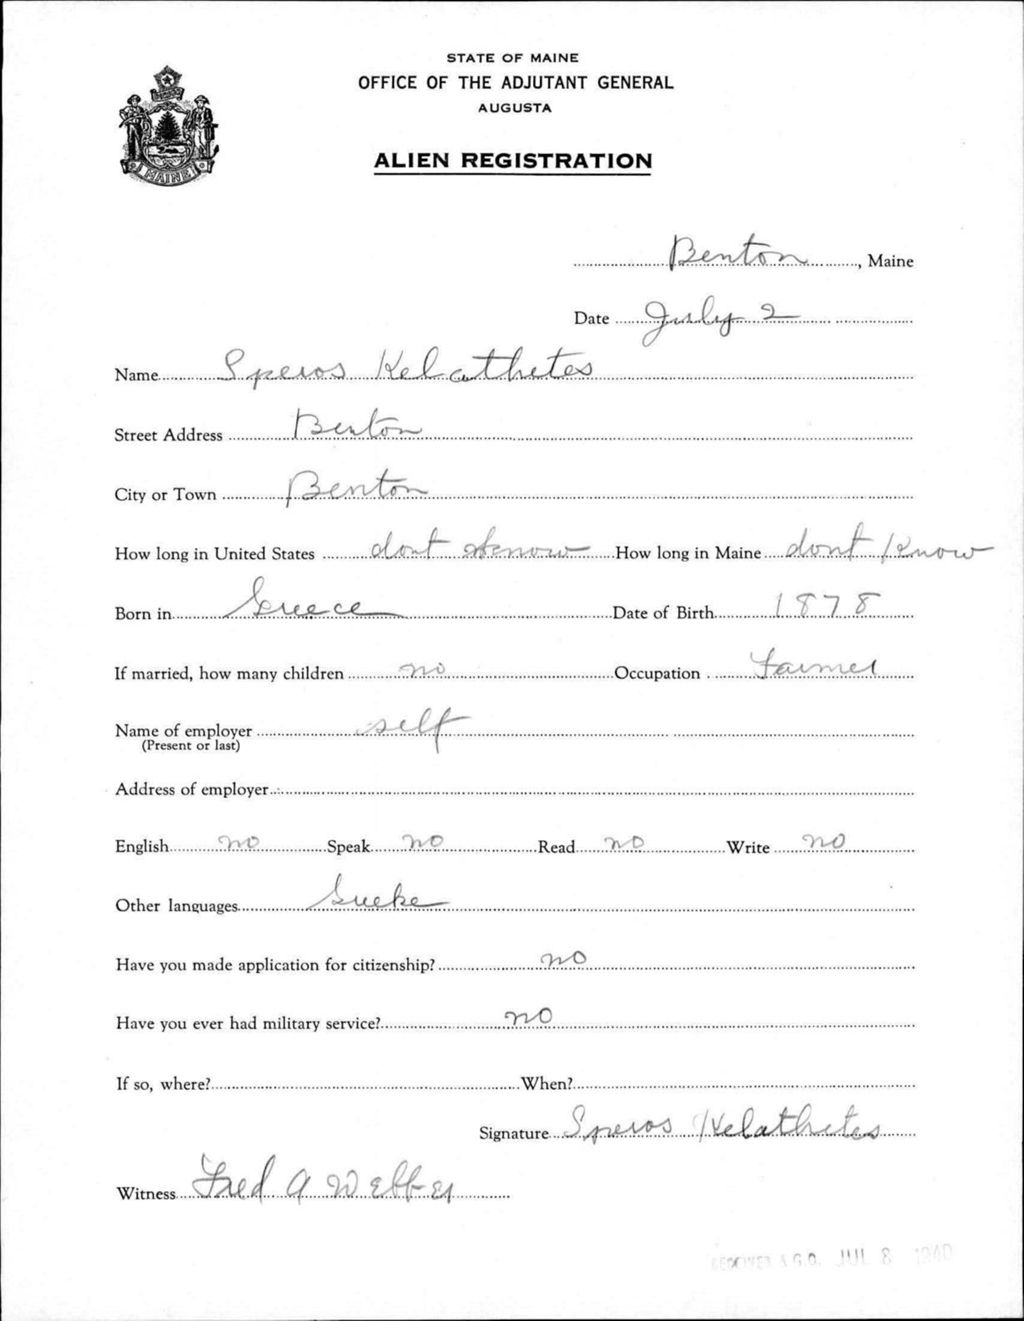 STATE OF MAINE
OFFICE OF THE ADJUTANT GENERAL
AUGUSTA
ALIEN REGISTRATION
MAINE
Benton, Maine
Date July 2
Name Speros Kelathetes
Street Address Benton
City or Town Benton
How long in United States dont know How long in Maine dont know
Born in Greece Date of Birth 1878
If married, how many children no Occupation Farmer
Name of employer self
(Present or last)
Address of employer
English no Speak no Read no Write no
Other languages Grecke
Have you made application for citizenship? no
Have you ever had military service? no
If so, where? When?
Signature Speros Kelathetes
Witness Fred A Webber
RECEIVED A.G.O. JUL 8 1940